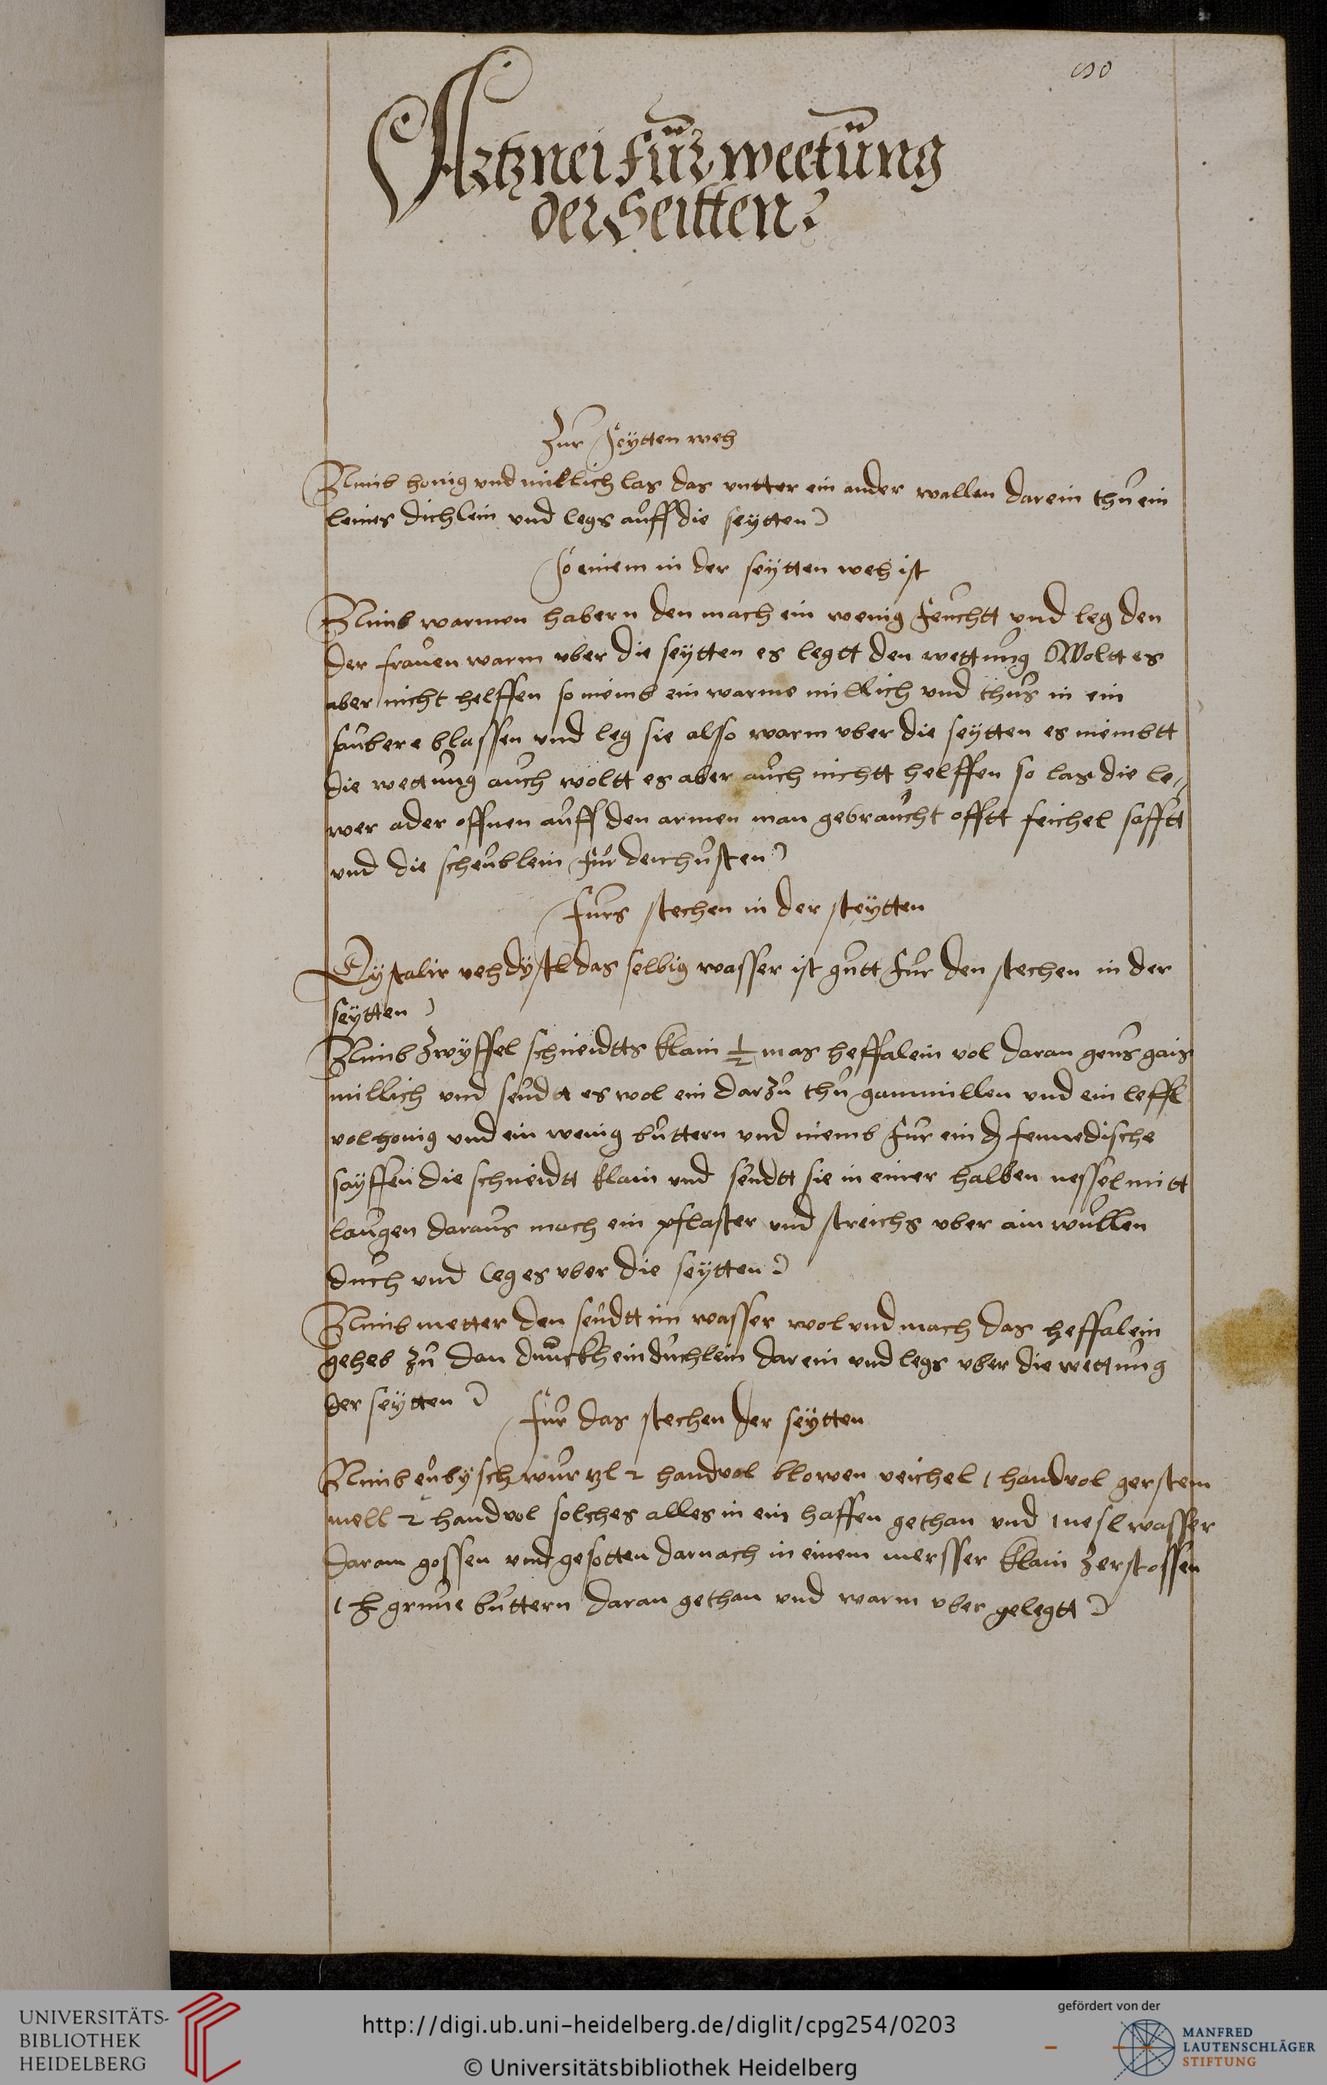 90
Artznei für weetung
der Seitten
Zur seytten weh
Nimb honig vnd millich las das vntter ein ander wallen darein thu ein
leines dichlein vnd legs auff die seytten
So einem in der seytten weh ist
Nimb warmen habern den mach ein wenig feuchtt vnd leg den
der frauen warm vber die seytten es legtt den wettung Woltt es
aber nicht helffen so nemb ein warme millich vnd thus in ein
saubere blassen vnd leg sie also warm vber die seytten es niembtt
die wettung auch woltt es aber auch nichtt helffen so las die le-
wer ader offnen auff den armen man gebraucht offtt feichel safftt
vnd die scheublein für den husten
Furs stechen in der steytten
vehdystl das selbig wasser ist gutt für den stechen in der
seytten
Nimb Zwyffel schneidtts klain ½ mas heffalein vol daran geus gais
millich vnd seudtt es wol ein darzu thu gammillen vnd ein leffl
vol honig vnd ein wenig buttern vnd niemb fur ein fennedische
sayffen die schneidtt klain vnd seudtt sie in einer halben nessel mitt
laugen daraus mach ein pflaster vnd streichs vber ain wullen
duch vnd leg es vber die seytten
Nimb metter den seudtt im wasser wol vnd mach das heffalein
geheb zu dan duuckh ein duchlein darein vnd legs vber die wettung
der seytten
Für das stechen der seytten
Nimb eubysch wurtzl 2 handvol blowen veichel 1 handvol gersten
mell 2 handvol solches alles in ein haffen gethan vnd 1 nesl wasser
daran gossen vnd gesotten darnach in einem mersser klain zerstossen
1 grune buttern daran gethan vnd warm vber gelegtt
UNIVERSITÄTS-
BIBLIOTHEK
HEIDELBERG
http://digi.ub.uni-heidelberg.de/diglit/cpg254/0203
© Universitätsbibliothek Heidelberg
gefördert von der
MANFRED
LAUTENSCHLÄGER
STIFTUNG